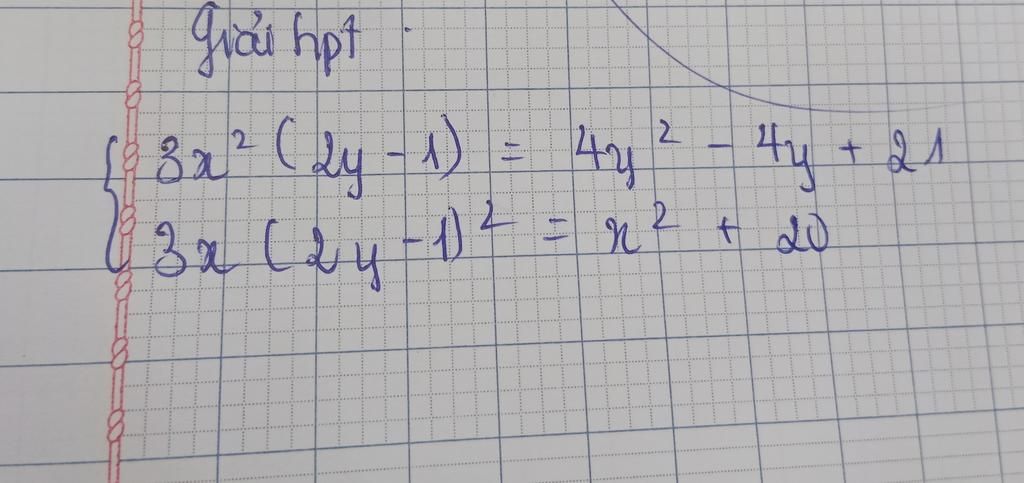 Giải hpt
3x² (2y - 1) = 4y² - 4y + 21
3x (2y - 1)² = x² + 20